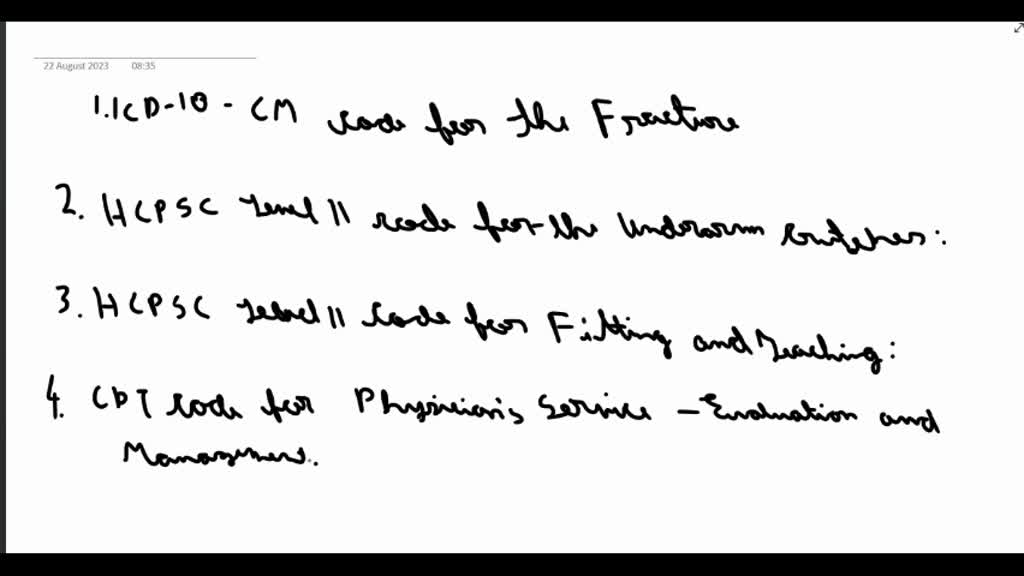 22 August 2023 08:35
1. ICD-10 - CM code for the Fracture
2. HCPSC Level II code for the Underarm Crutches:
3. HCPSC Level II code for Fitting and Teaching:
4. CPT code for Physician's Service - Evaluation and
Management.